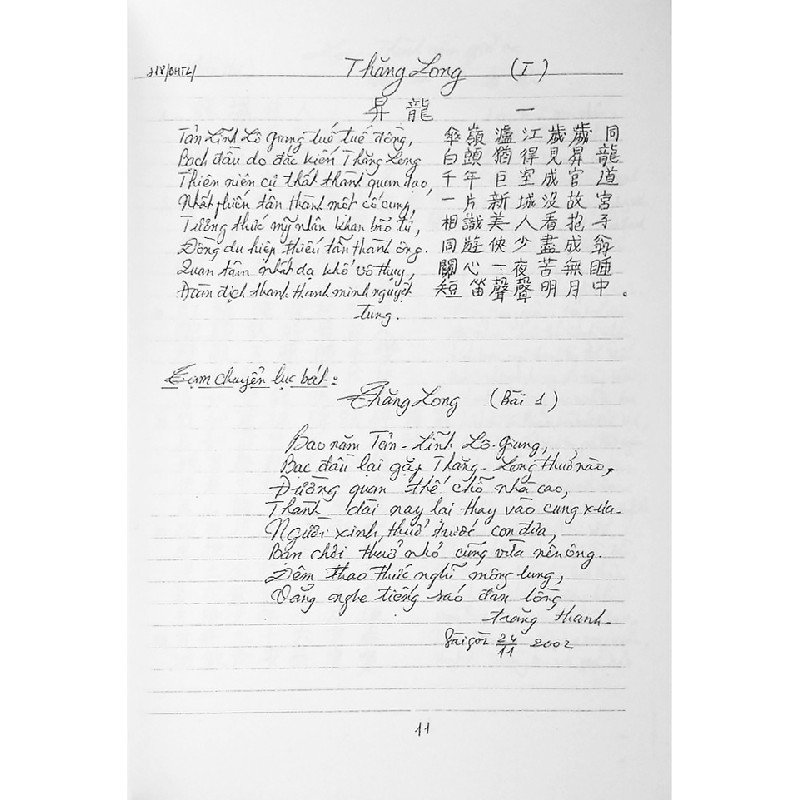 Thăng Long (I)
昇龍 一
Tản Lĩnh Lô Giang tuế tuế đồng, 傘嶺瀘江歲歲同
Bạch đầu do đắc kiến Thăng Long 白頭猶得見昇龍
Thiên niên cự thất thành quan đạo, 千年巨室成官道
Nhất phiến tân thành một cố cung, 一片新城沒故宮
Tương thức mỹ nhân khan bão tử, 相識美人看抱子
Đồng du hiệp thiếu tẫn thành ông. 同遊俠少盡成翁
Quan tâm nhất dạ khổ vô thụy, 關心一夜苦無睡
Đoản địch thanh thanh minh nguyệt 短笛聲聲明月中。
trung.
Tạm chuyển lục bát:
Thăng Long (Bài 1)
Bao năm Tản - Lĩnh Lô - Giang,
Bạc đầu lại gặp Thăng - Long thuở nào,
Đường quan thế chỗ nhà cao,
Thành đài nay lại thay vào cung xưa.
Người xinh thuở trước con đưa,
Bạn chơi thuở nhỏ cũng vừa nên ông.
Đêm thao thức nghĩ mông lung,
Vẳng nghe tiếng sáo đan lồng
trăng thanh.
Sài gòn 24/11 2002
11